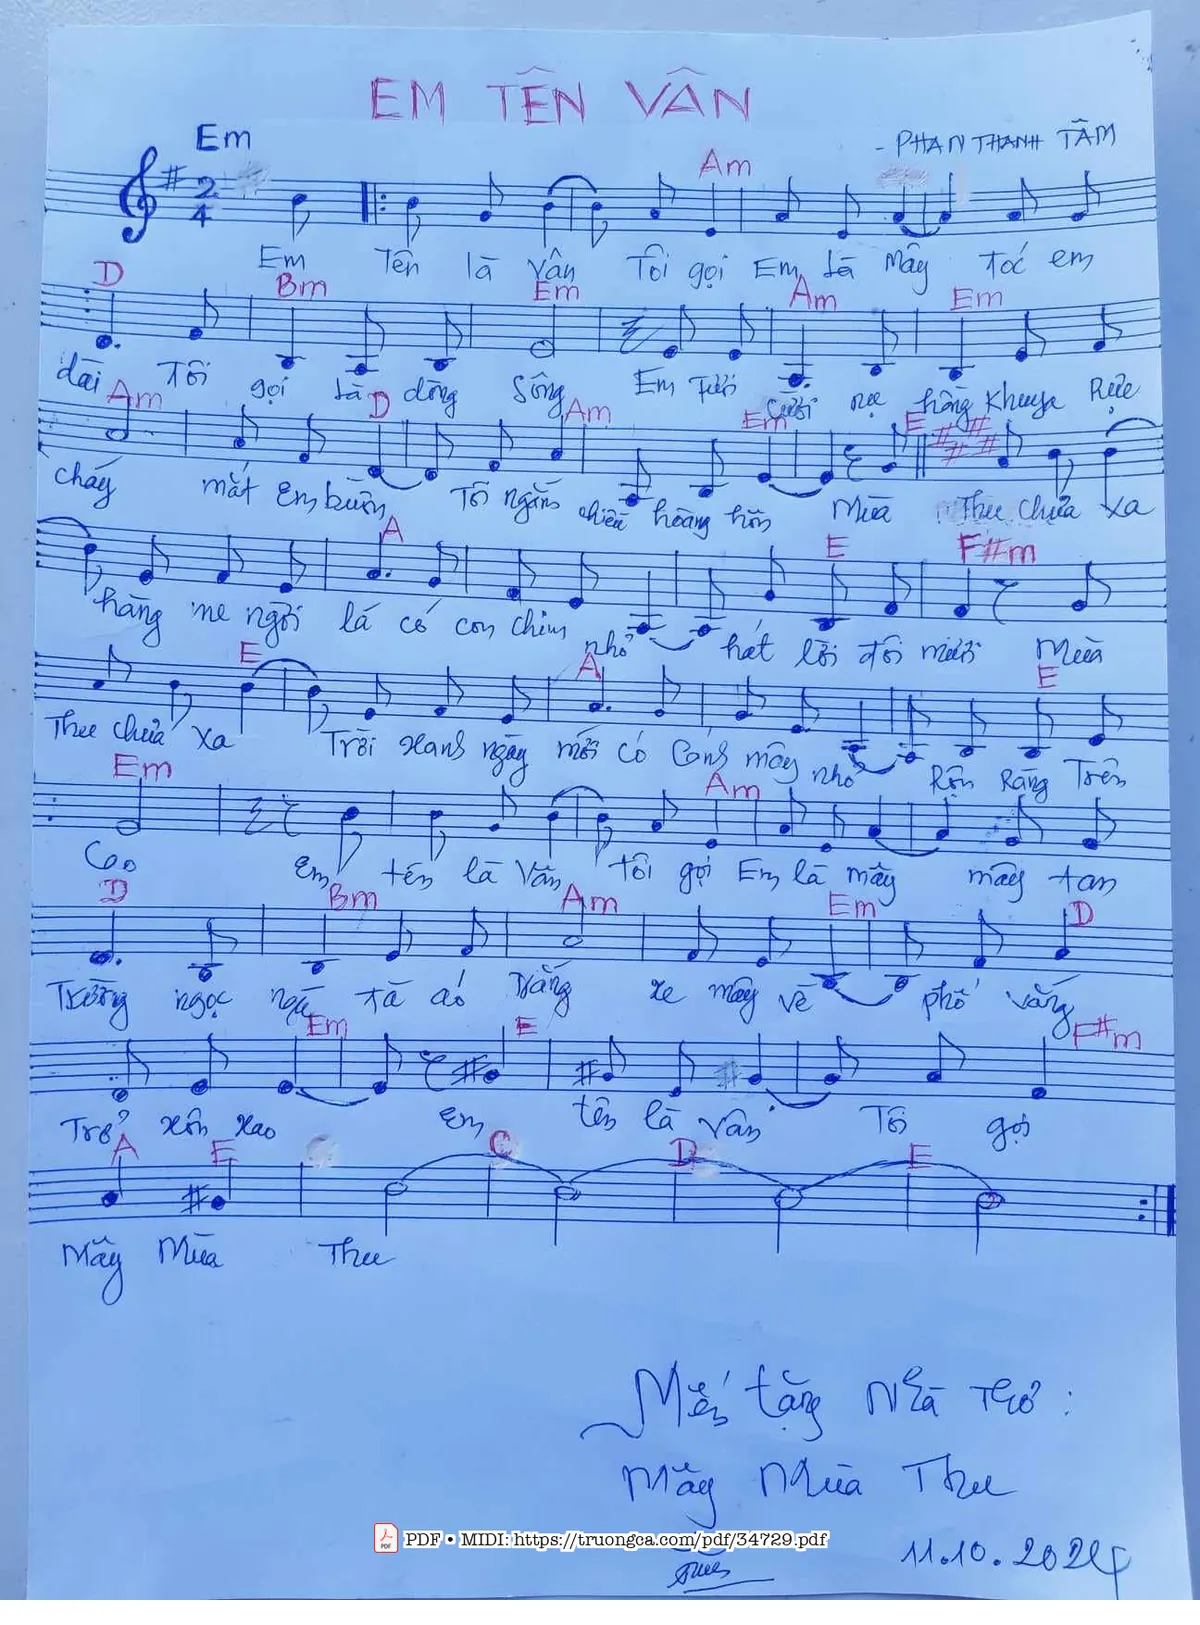 EM TÊN VÂN
- PHAN THANH TÂM
Em
2
4
Am
Em Tên là Vân Tôi gọi Em là Mây tóc em
D Bm Em Am Em
dài Tôi gọi là dòng Sông Em cười hồng Khuya Rực
Am D Am Em E
cháy mắt Em buồn Tôi ngắm chiều hoàng hôn Mùa Thu chưa xa
A E F#m
hàng me ngời lá có con chim nhỏ hát lời đôi mươi Mùa
E A E
Thu chưa xa Trời xanh ngày mới có Cánh mây nhỏ Rộn Ràng Trên
Em Am
Cao Em tên là Vân tôi gọi Em là mây mây tan
D Bm Am Em D
Trường ngọc ngà tà áo trắng xe mây về phố vắng
Em E F#m
Trở xôn xao Em tên là Vân Tôi gọi
A E C D E
Mây Mùa Thu
Mến tặng Nhà Thơ:
Mây Mùa Thu
PDF • MIDI: https://truongca.com/pdf/34729.pdf
11.10.2024